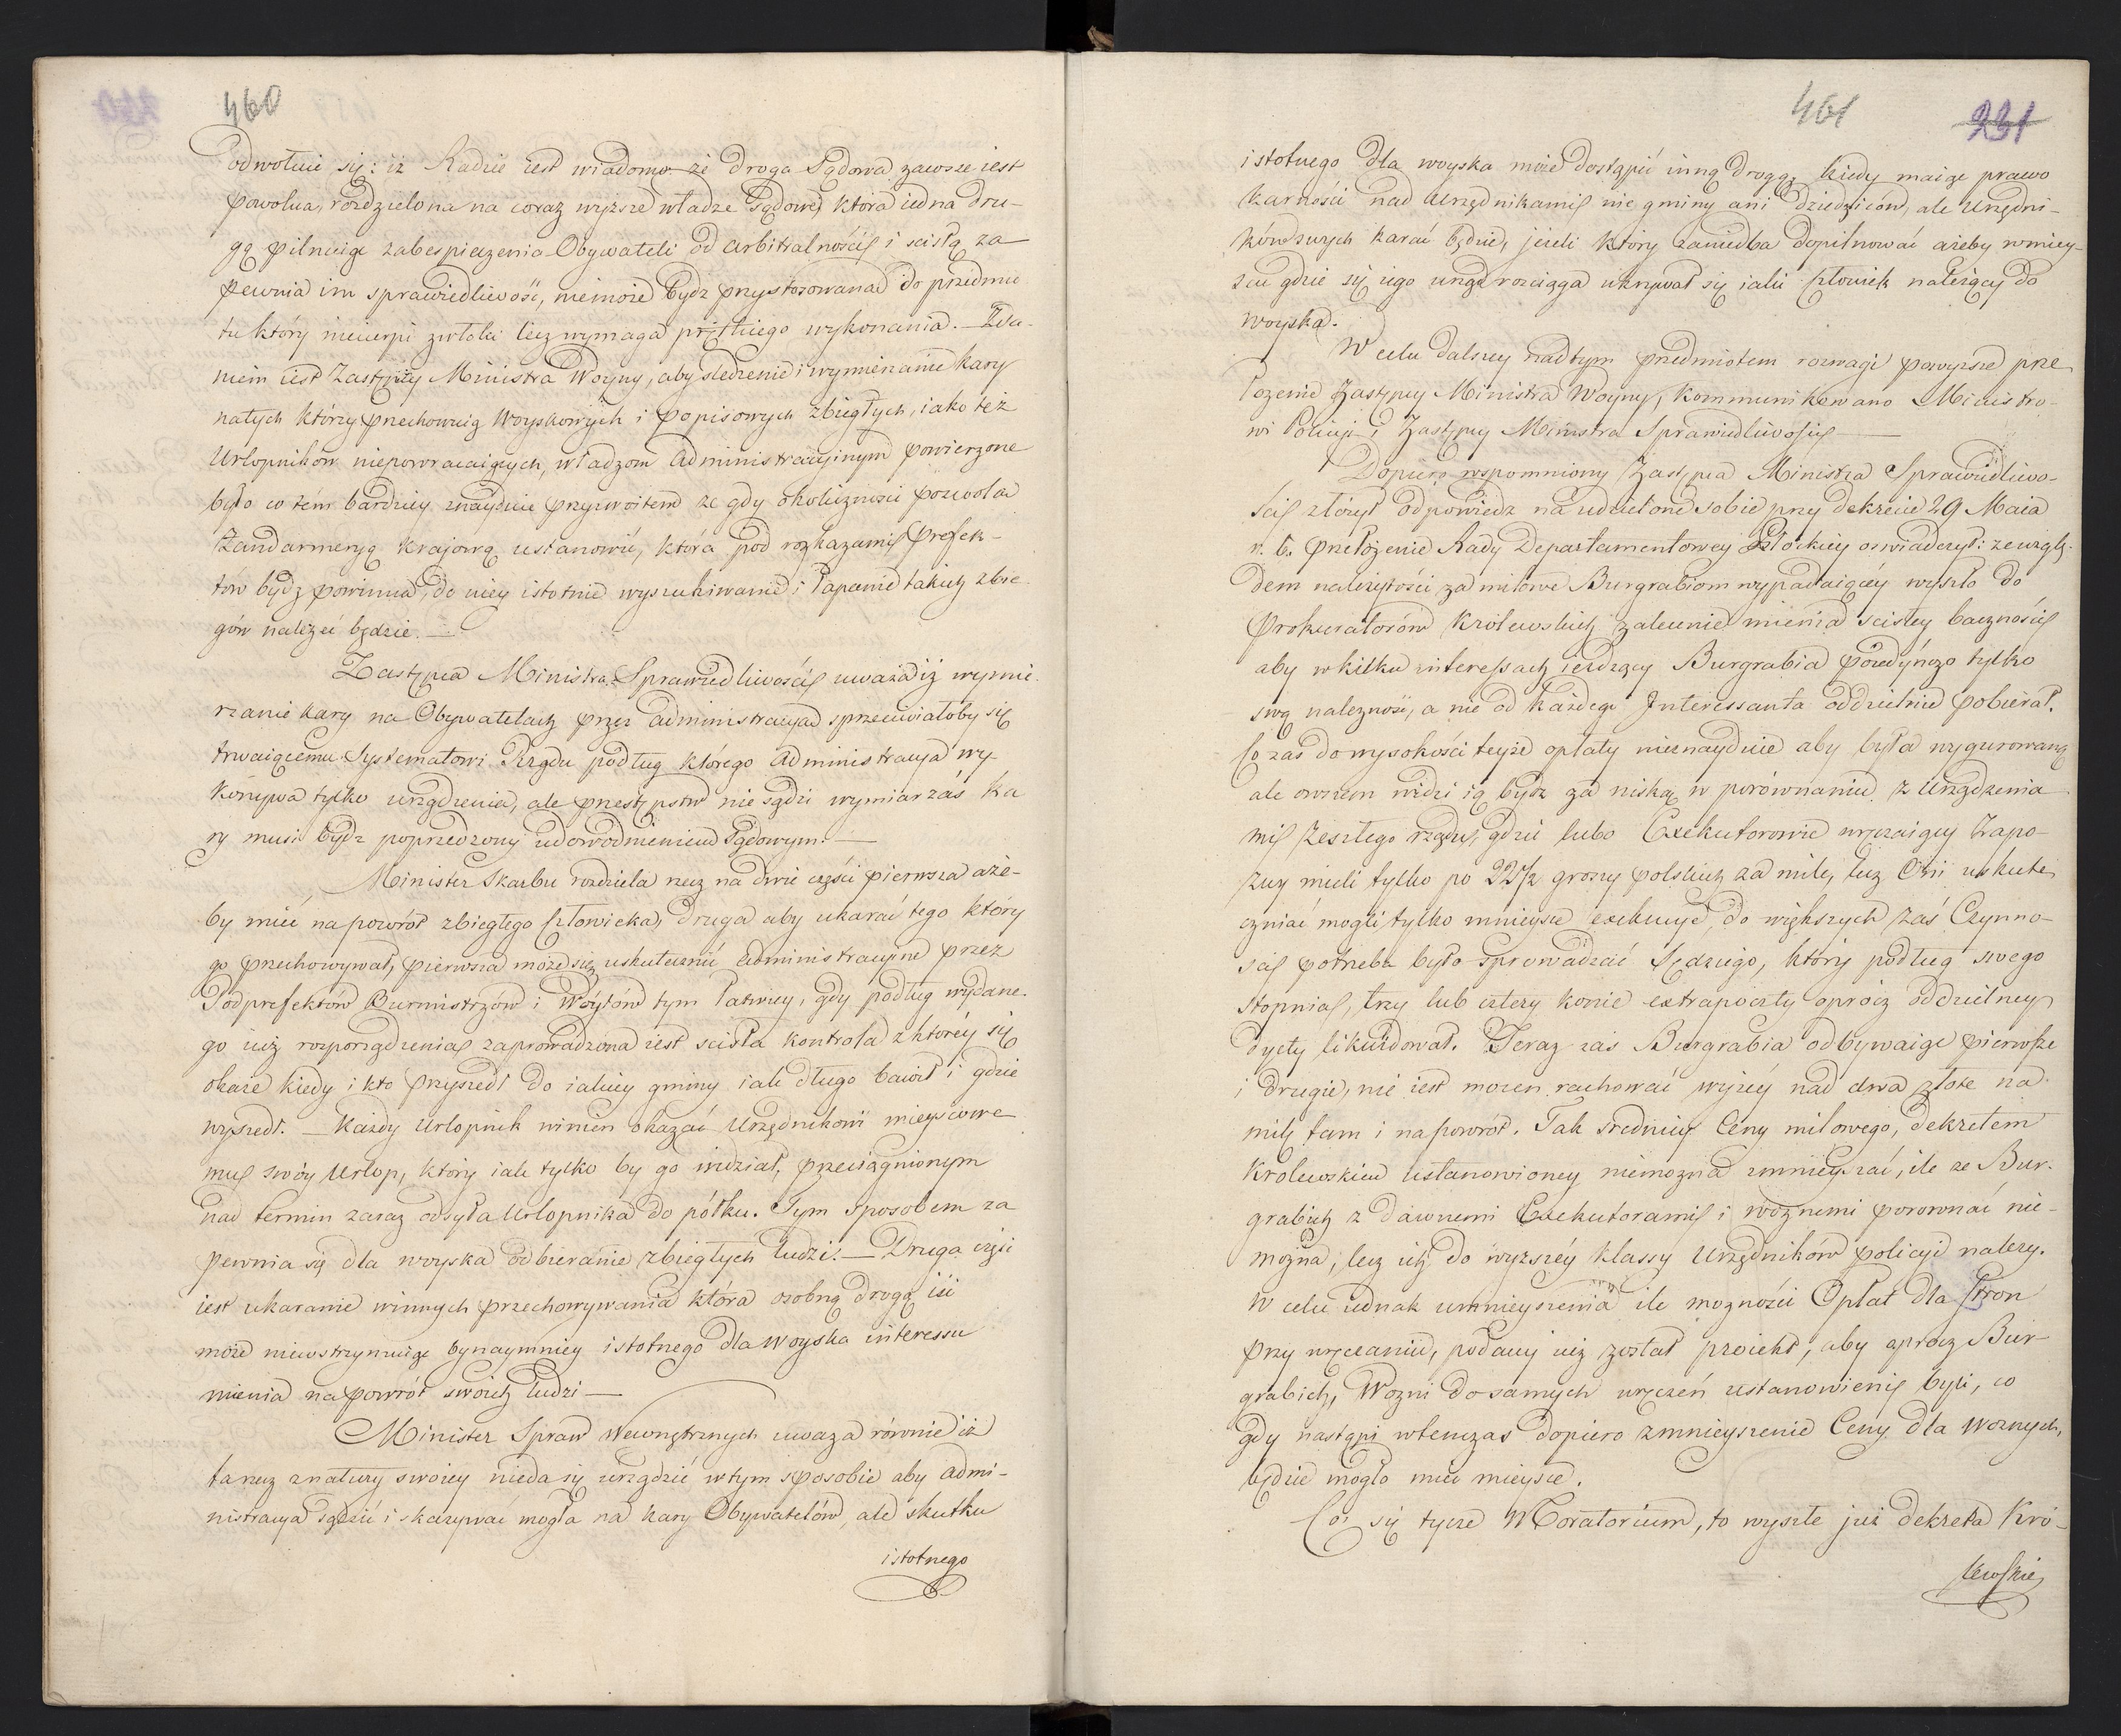 460
odwołuie się: iż Radzie iest wiadomo że droga Sądowa zawsze iest
powolna, rozdzielona na coraz wyższe władze Sądowe, która iedna dru-
gą pilnuiąc zabespieczenia Obywateli od arbitralności i scisłą za
pewnia im sprawiedliwość, niemoże bydz przystosowana do przedmio
tu który niecierpi zwłoki lecz wymaga prętkiego wykonania. — Zda-
niem iest Zastępcy Ministra Woyny, aby sledzenie i wymierzanie kary
natych którzy przechowuią Woyskowych i popisowych zbiegłych, iako też
Urlopników niepowracaiących, władzom Administracyinym powierzone
było co tém bardziey znayduie przyzwoitem że gdy okoliczności pozwolą
Żandarmeryą Kraiową ustanowić, która pod rozkazami Prefek-
tów bydz powinna, do niey istotnie wyszukiwanie i łapanie takich zbie
gów należeć będzie. —
Zastępca Ministra Sprawiedliwości uważa iż wymie
rzanie kary na Obywatelach przez administracyą sprzeciwiałoby się
trwaiącemu Systematowi Rządu podług którego Administracya wy-
konywa tylko urządzenia, ale przestępstw nie sądzi wymiar zaś ka
ry musi bydz poprzedzony udowodnieniem Sądowym. —
Minister Skarbu rozdziela rzecz na dwie części pierwsza aże-
by mieć napowrót zbiegłego człowieka, druga aby ukarać tego który
go przechowywał, pierwsza może się uskutecznić administracyinie przez
Podprefektów Burmistrzów i Wóytów tym łatwiey, gdy podług wydane-
go iuż rozporządzenia zaprowadzona iest scisła kontrola z któréy się
okaże kiedy i kto przyszedł do iakiey gminy iak długo bawił i gdzie
wyszedł. — Każdy Urlopnik winien okazać Urzędnikowi mieyscowe
mu swóy Urlop, który iak tylko by go widział, przeciągnionym
nad termin zaraz odsyła Urlopnika do półku. Tym sposobem za
pewnia się dla woyska odbieranie zbiegłych ludzi. — Druga częsć
iest ukaranie winnych przechowywania która osobną drogą iść
może niewstrzymuiąc bynaymniey istotnego dla woyska interessu
mienia napowrót swoich ludzi —
Minister Spraw Wewnętrznych uważa równie iż
ta rzecz z natury swoiey nieda się urządzić w tym sposobie aby admi-
nistracya sądzić i skazywać mogła na kary Obywatelów, ale skutku
istotnego
461
231
istotnego dla woyska może dostąpić inną drogą, kiedy maiąc prawo
karności nad Urzędnikami nie gminy ani dziedziców, ale Urzędni-
ków swych karać będzie, jeżeli który zaniedba dopilnować ażeby w miey-
scu gdzie się iego urząd rozciąga ukrywał się iaki człowiek należący do
woyska.
W celu dalszey nad tym przedmiotem rozwagi powyższe prze
łożenie Zastępcy Ministra Woyny, kommunikowano Ministro-
wi Policyi i Zastępcy Ministra Sprawiedliwości —
Dopiero wspomniony Zastępca Ministra Sprawiedliwo-
ści złożył odpowiedz na udzielone sobie przy dekrecie 29 Maia
r. b. przełożenie Rady Departamentowey Płockiey oswiadczył: że wzglę-
dem należytości za milowe Burgrabiom wypadaiącéy wyszło do
Prokuratorów Królewskich zalecenie mienia scisłey baczności
aby w kilku interessach ieżdżący Burgrabia poiedyńczo tylko
swą należność, a nie od każdego Interessanta oddzielnie pobierał.
Co zaś do wysokości teyże opłaty nieznayduie aby była wygurowaną
ale owszem widzi ią bydz za niską w porównaniu z Urządzenia
mi zeszłego rządu, gdzie lubo Exekutorowie wręczaiący Zapo-
zwy mieli tylko po 22½ groszy polskich za milę, lecz Oni uskute
czniać mogli tylko mnieysze exekucye, do większych zaś Czynno-
ści potrzeba było sprowadzać Sędziego, który podług swego
stopnia, trzy lub cztery konie extrapoczty oprócz oddzielney
dyety likwidował. Teraz zaś Burgrabia odbywaiąc pierwsze
i drugie, nie iest mocen rachować wyżéy nad dwa złote na
milę tam i napowrót. Tak sredniey Ceny milowego, dekretem
Królewskim ustanowioney niemożna zmnieyszać, ile że Bur-
grabich z dawnemi Exekutorami i woźnemi porownać nie-
można, lecz ich do wyższéy klassy Urzędników policyi należy.
W celu iednak umnieyszenia ile możności Opłat dla Stron
przy wręczaniu, podany iuż został proiekt, aby oprócz Bur-
grabich, Woźni do samych wręczeń ustanowieni byli, co
gdy nastąpi wtenczas dopiero zmnieyszenie Ceny dla Woznych,
będzie mogło mieć mieysce.
Co się tycze Moratorium, to wyszłe już dekreta Kró-
lewskie